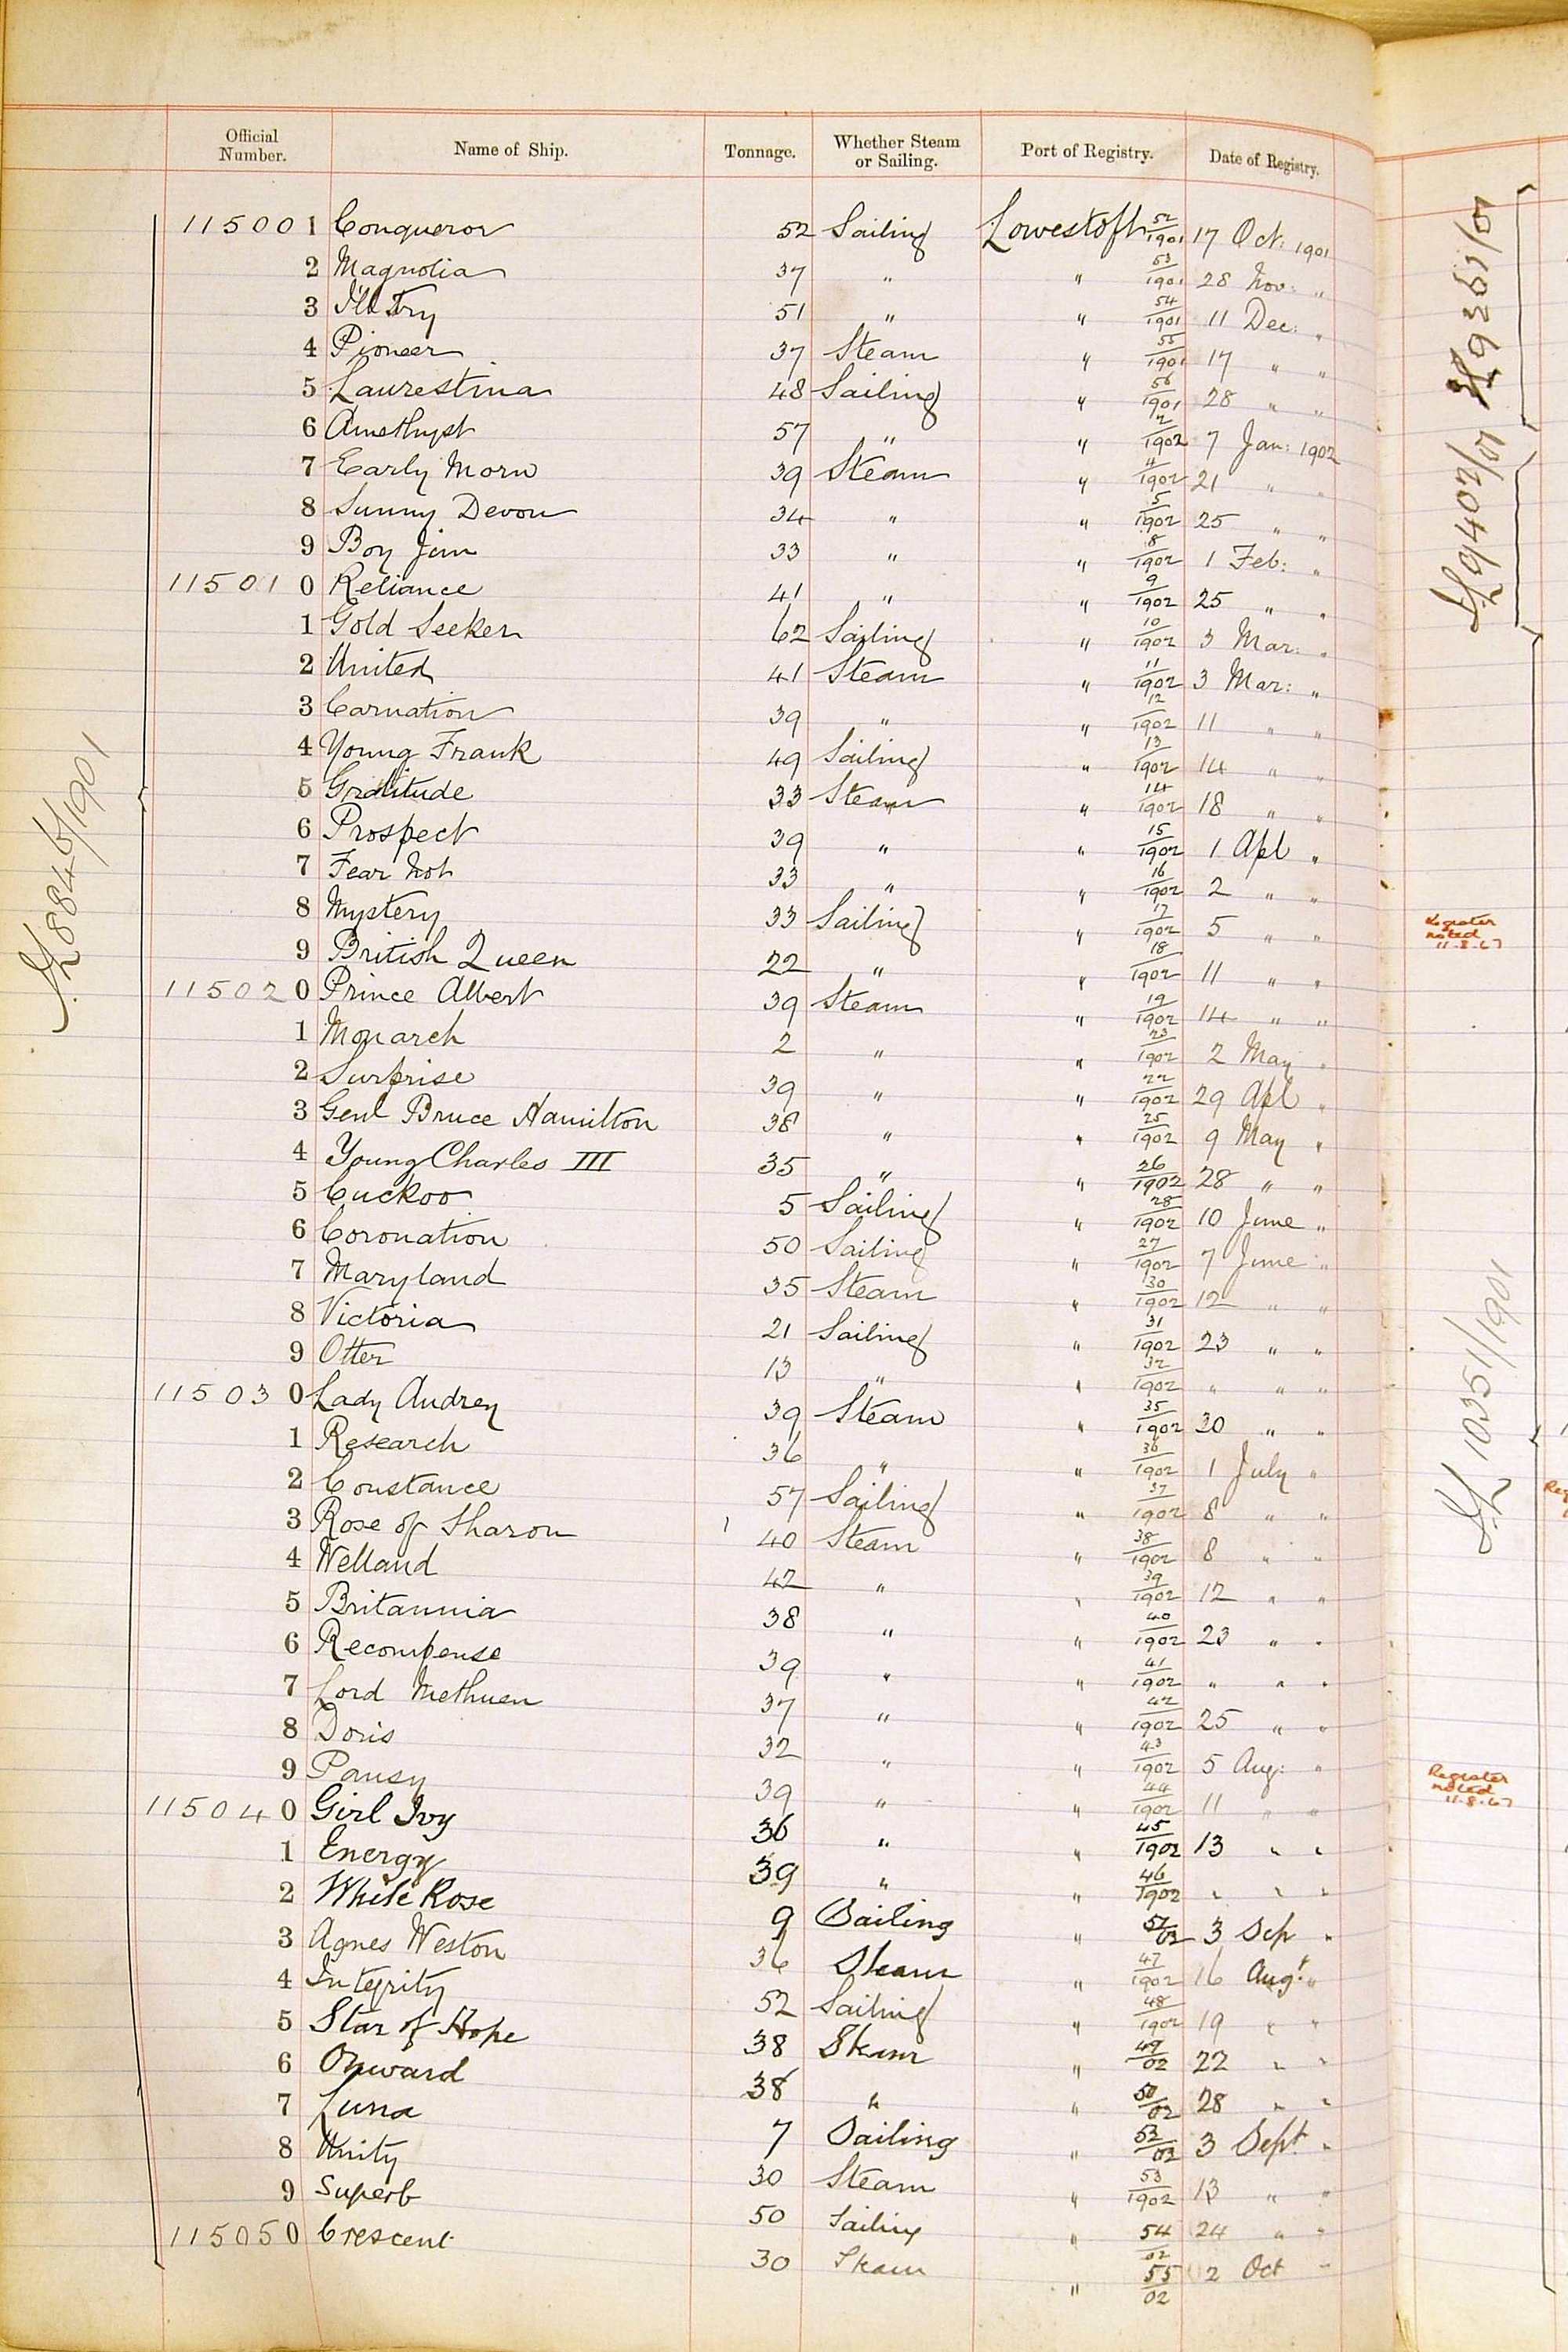 Official Number. Name of Ship. Tonnage. Whether Steam or Sailing. Port of Registry. Date of Registry.
115001 Conqueror 52 Sailing Lowestoft 52/1901 17 Oct: 1901
2 Magnolia 37 " " 53/1901 28 Nov: "
3 I'll Try 51 " " 54/1901 11 Dec: "
4 Pioneer 37 Steam " 55/1901 17 " "
5 Laurestina 48 Sailing " 56/1901 28 " "
6 Amethyst 57 " " 2/1902 7 Jan: 1902
7 Early Morn 39 Steam " 4/1902 21 " "
8 Sunny Devon 34 " " 5/1902 25 " "
9 Boy Jim 33 " " 8/1902 1 Feb: "
115010 Reliance 41 " " 9/1902 25 " "
1 Gold Seeker 62 Sailing " 10/1902 3 Mar: "
2 United 41 Steam " 11/1902 3 Mar: "
3 Carnation 39 " " 12/1902 11 " "
4 Young Frank 49 Sailing " 13/1902 14 " "
5 Gratitude 33 Steam " 14/1902 18 " "
6 Prospect 39 " " 15/1902 1 Apl "
7 Fear Not 33 " " 16/1902 2 " "
8 Mystery 33 Sailing " 17/1902 5 " "
9 British Queen 22 " " 18/1902 11 " "
115020 Prince Albert 39 Steam " 19/1902 14 " "
1 Monarch 2 " " 23/1902 2 May "
2 Surprise 39 " " 22/1902 29 Apl "
3 Genl Bruce Hamilton 38 " " 25/1902 9 May "
4 Young Charles III 35 " " 26/1902 28 " "
5 Cuckoo 5 Sailing " 28/1902 10 June "
6 Coronation 50 Sailing " 27/1902 7 June "
7 Maryland 35 Steam " 30/1902 12 " "
8 Victoria 21 Sailing " 31/1902 23 " "
9 Otter 13 " " 32/1902 " " "
115030 Lady Audrey 39 Steam " 35/1902 30 " "
1 Research 36 " " 36/1902 1 July "
2 Constance 57 Sailing " 37/1902 8 " "
3 Rose of Sharon 40 Steam " 38/1902 8 " "
4 Welland 42 " " 39/1902 12 " "
5 Britannia 38 " " 40/1902 23 " "
6 Recompense 39 " " 41/1902 " " "
7 Lord Methuen 37 " " 42/1902 25 " "
8 Doris 32 " " 43/1902 5 Aug: "
9 Pansy 39 " " 44/1902 11 " "
115040 Girl Ivy 36 " " 45/1902 13 " "
1 Energy 39 " " 46/1902 " " "
2 White Rose 9 Sailing " 51/02 3 Sep "
3 Agnes Weston 36 Steam " 47/1902 16 Augt "
4 Integrity 52 Sailing " 48/1902 19 " "
5 Star of Hope 38 Steam " 49/02 22 " "
6 Onward 38 " " 50/02 28 " "
7 Luna 7 Sailing " 52/02 3 Sept "
8 Unity 30 Steam " 53/1902 13 " "
9 Superb 50 Sailing " 54/02 24 " "
115050 Crescent 30 Steam " 55/02 2 Oct "
8846/1901
9263/01
9402/01
Register noted 11.8.67
10351/1901
Register noted 11.8.67